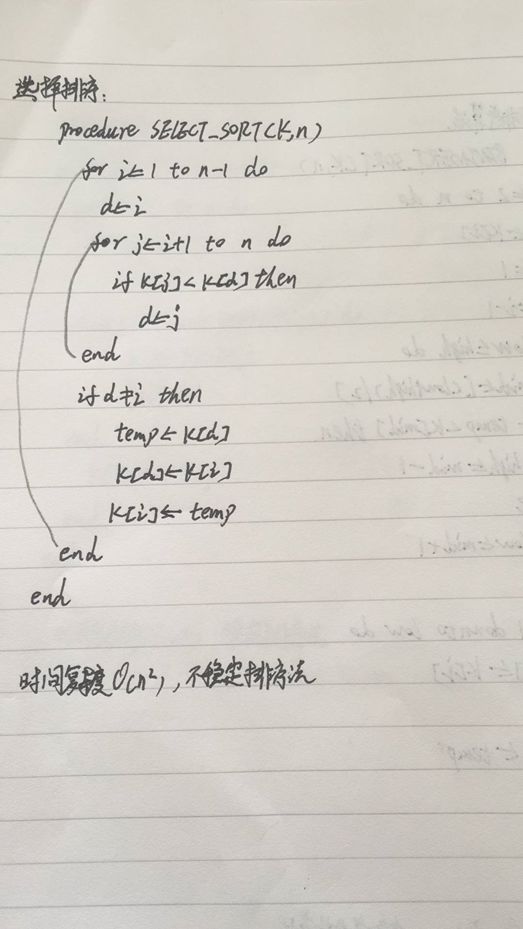 选择排序:
procedure SELECT_SORT(K,n)
for i←1 to n-1 do
d←i
for j←i+1 to n do
if K[j]<K[d] then
d←j
end
if d≠i then
temp←K[d]
K[d]←K[i]
K[i]←temp
end
end
时间复杂度O(n²),不稳定排序法